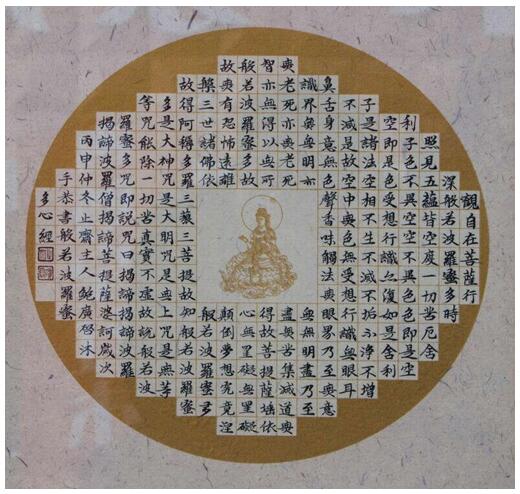 觀自在菩薩行
深般若波羅蜜多時
照見五蘊皆空度一切苦厄舍
利子色不異空空不異色色即是空
空即是色受想行識亦復如是舍利
子是諸法空相不生不滅不垢不淨不增
不減是故空中無色無受想行識無眼耳
鼻舌身意無色聲香味觸法無眼界乃至無意
識界無無明亦無無明盡乃至
無老死亦無老死盡無苦集滅道無
智亦無得以無所得故菩提薩埵依
般若波羅蜜多故心無罣礙無罣礙
故無有恐怖遠離顛倒夢想究竟涅
槃三世諸佛依般若波羅蜜多
故得阿耨多羅三藐三菩提故知般若波羅蜜
多是大神咒是大明咒是無上咒是無等
等咒能除一切苦真實不虛故說般若波
羅蜜多咒即說咒曰揭諦揭諦波羅
揭諦波羅僧揭諦菩提薩婆訶歲次
丙申仲冬止齋主人鮑廣沐
手恭書般若波羅蜜
多心經